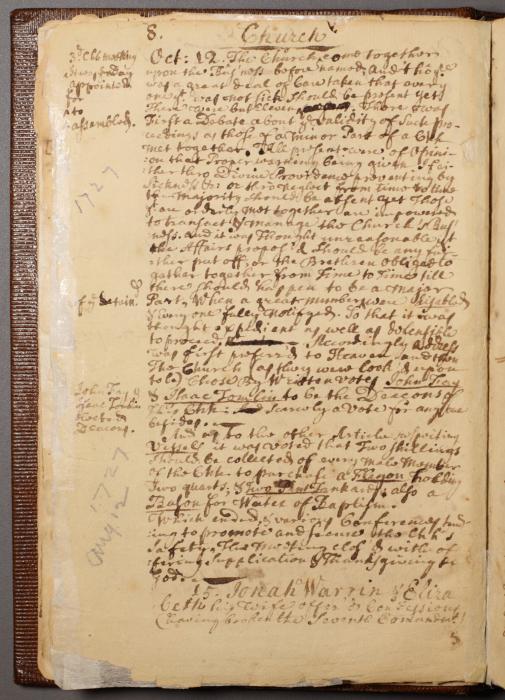 8. Church
Oct: 12. The Church come together
upon the Business before named, And tho ye
was a great deal of Care taken that every
one yt was not sick should be present yet
There were but Eleven. There was
First a Debate about ye Validity of such pro-
ceedings as those of a minor Part of a Chh
met together. All present were of Opini-
on that Proper warning being given & far-
ther thro Divine Providence preventing by
Sickness &c: or thro neglect from Time to time
ye majority should be absent yet Those
yt are orderly met together are impowered
to transact & manage the Church's Busi-
ness. And it was Thought unreasonable yt
the Affairs propos'd should be any fur-
ther put off, or the Brethren obliged to
gather together from Time to Time till
there should happen to be a Major
Part, When a great number were disabled
& every one fully notifyed. So that it was
thought expedient as well as defensible
to proceed. Accordingly Address
was first preferred to Heaven and then
The Church (as they were look'd upon
to be) Chose By Written votes John Fray
& Isaac Tomlin to be the Deacons of
This Chh: And scarcely a Vote for any one
besides.
And as to the other Article respecting
Vessels it was voted that Two shillings
should be collected of every male Member
of the Chh to purchase a Flagon holding
Two quarts, & Two Pint Tankards; also a
Bason for Water of Baptism.
Which ended, & various Conferences tend-
ing to promote and secure the Chh's
Safety, The Meeting clos'd with of-
fering Supplication & Thanksgiving to
God.
15. Jonah Warrin & Eliza
beth his wife offer'd Confessions
(having broken the Seventh Comandmt)
3d Chh meeting
appointed
assembled.
1727
of ye Detain
John Fray &
Isaac Tomlin
Elected
Deacons.
1727